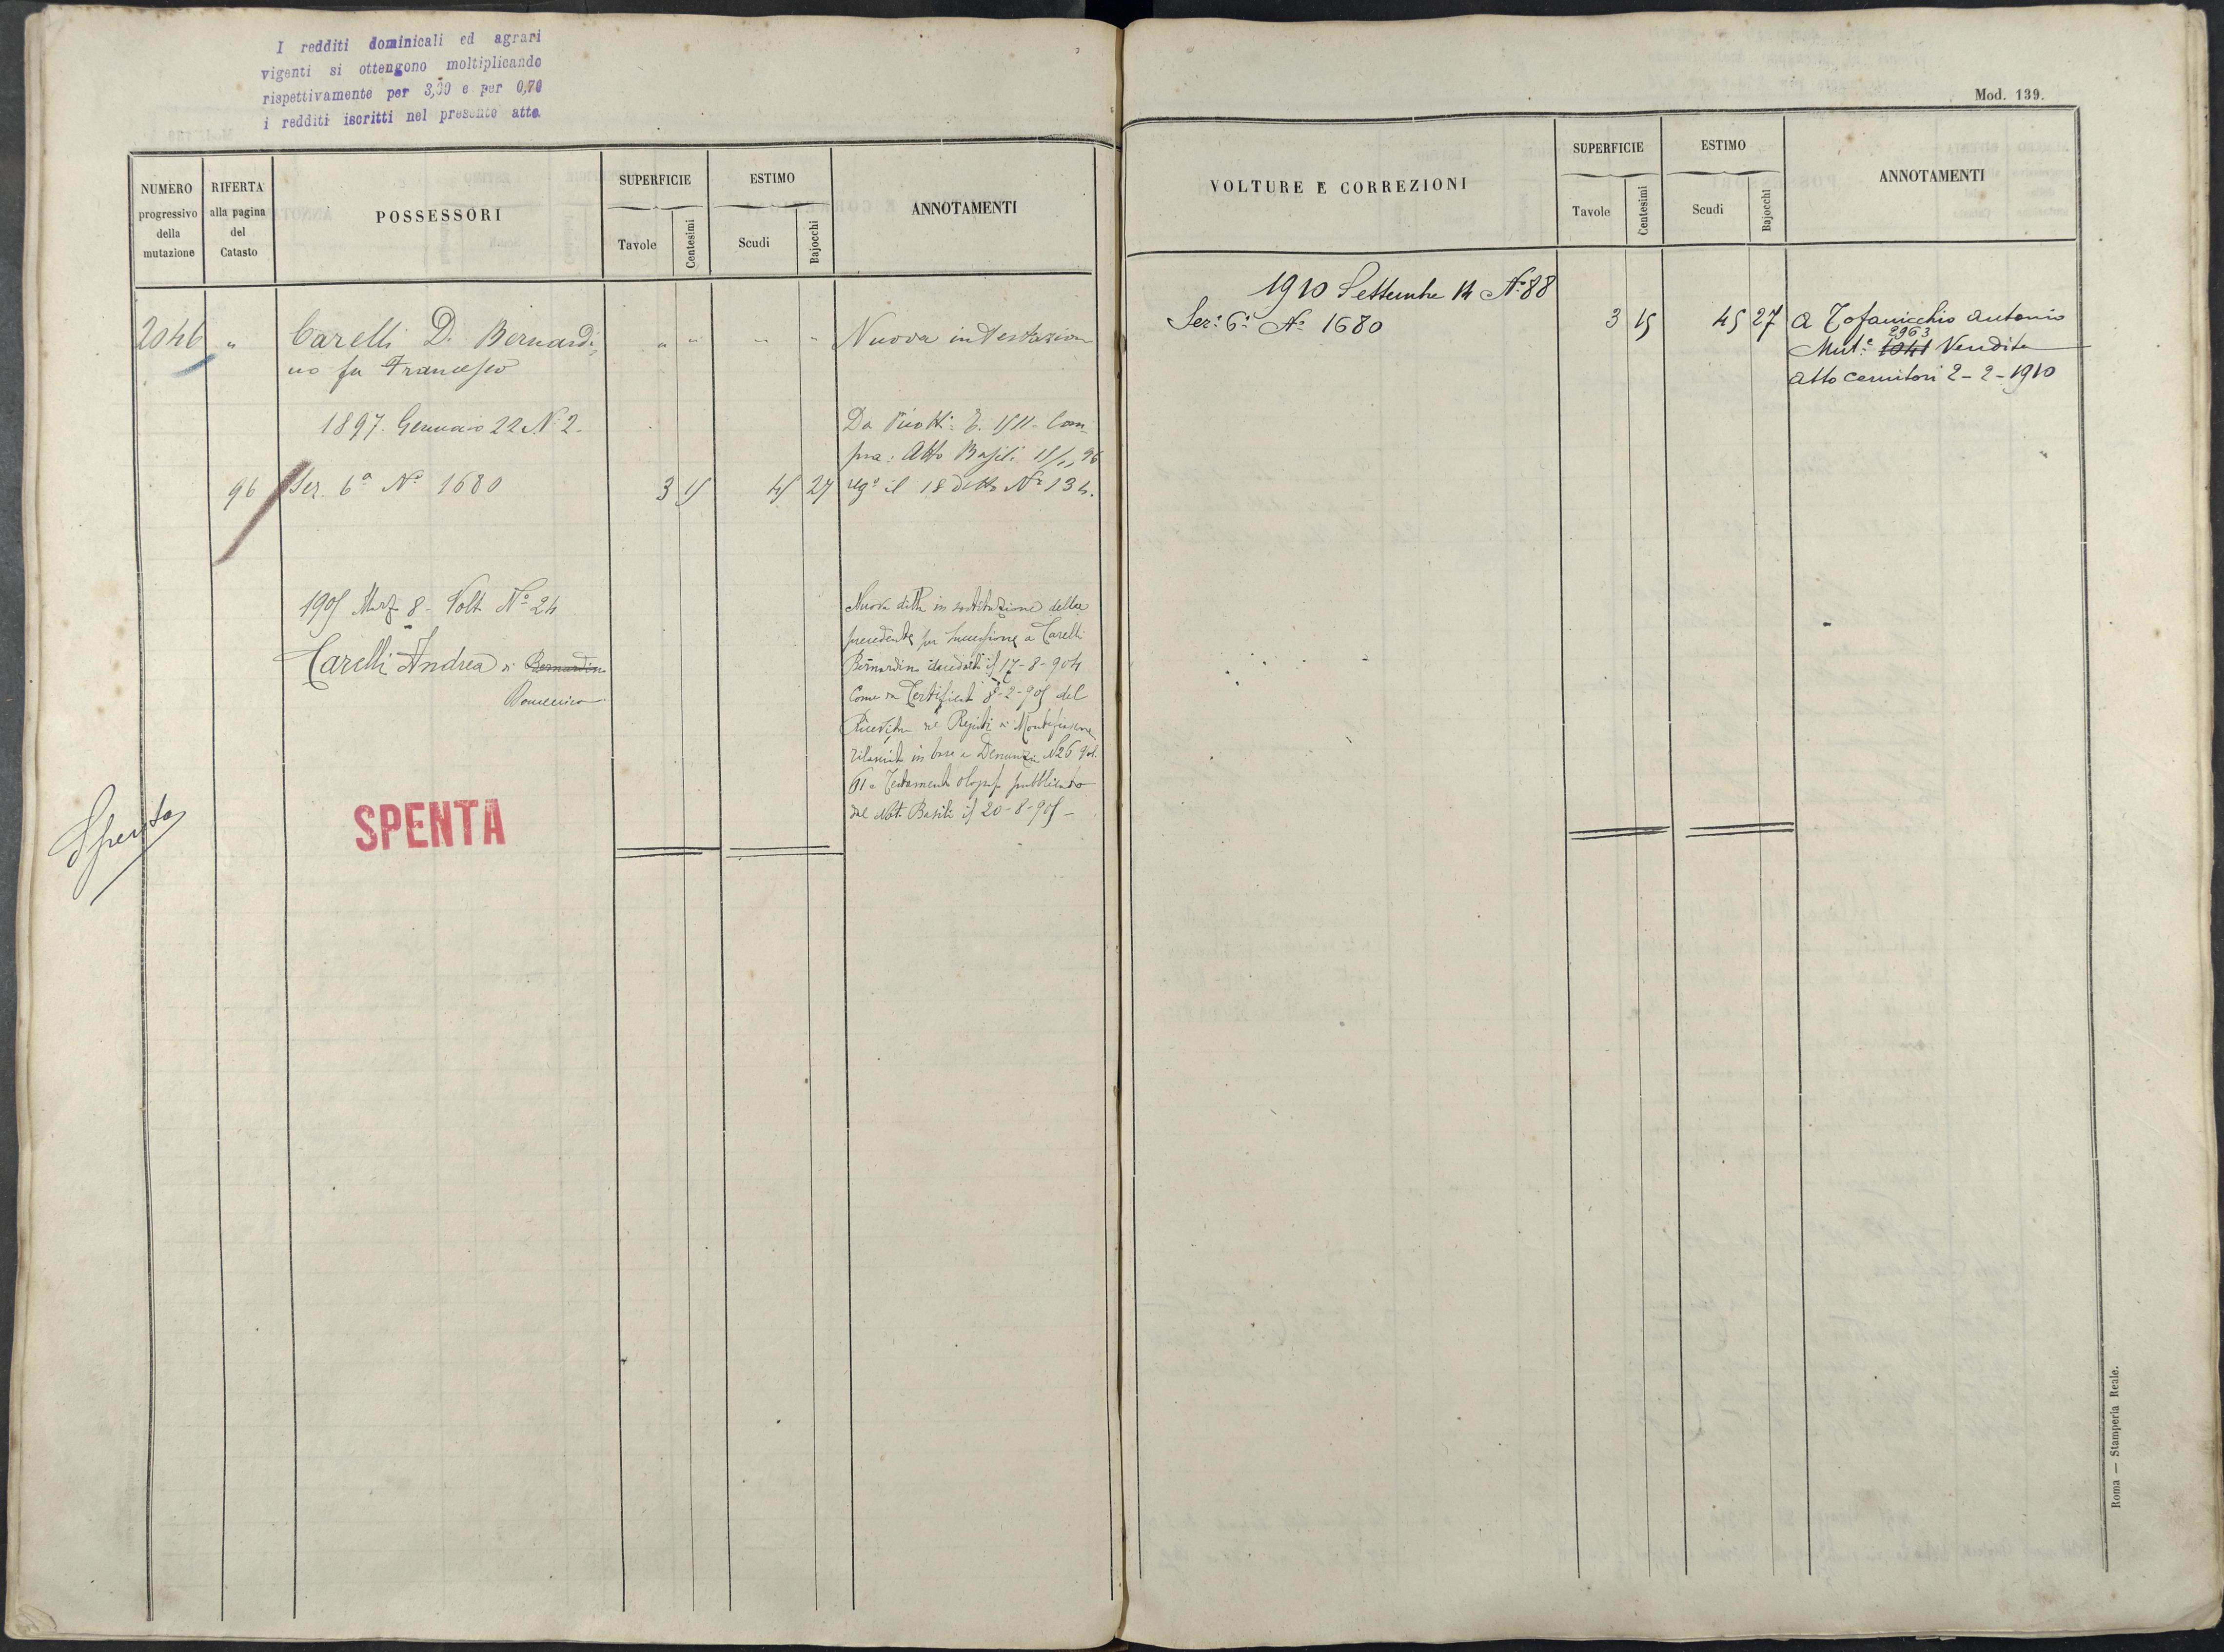 I redditi dominicali ed agrari
vigenti si ottengono moltiplicando
rispettivamente per 3,30 e per 0,70
i redditi iscritti nel presente atto.
NUMERO progressivo della mutazione
RIFERTA alla pagina del Catasto
POSSESSORI
SUPERFICIE
Tavole
Centesimi
ESTIMO
Scudi
Bajocchi
ANNOTAMENTI
2046 " Carelli D. Bernardi- " " " " Nuova intestazione
no fu Francesco
1897. Gennaio 22 N. 2.
Da
Com-
pra: Atto Basili
96 Ser. 6ª Nº 1680 3 15 45 27 regº il 18 detto Nº 134.
1905 Marzo 8 - Volt. Nº 24
Carelli Andrea di Bernardino
Domenico
Nuova ditta in sostituzione della
precedente per successione a Carelli
Bernardino deceduto il 17-8-904
Come da Certificato 8-2-905 del
Ricevitore del Registro di Montefiascone
rilasciato in base a Denunzia N 26 Vol.
61 e Testamento olografo pubblicato
dal Not. Basili il 20-8-905 -
Spenta
SPENTA
Mod. 139.
VOLTURE E CORREZIONI
SUPERFICIE
Tavole
Centesimi
ESTIMO
Scudi
Bajocchi
ANNOTAMENTI
1910 Settembre 14 Nº 88
Ser. 6ª Nº 1680 3 15 45 27 a Tofanicchio Antonio
2963
Mut. 1041 Vendita
atto Cernitori 2-2-1910
Roma — Stamperia Reale.